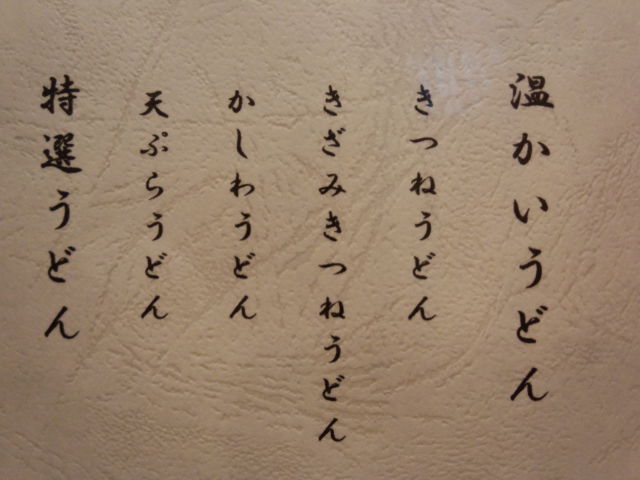 温かいうどん
きつねうどん
きざみきつねうどん
かしわうどん
天ぷらうどん
特選うどん